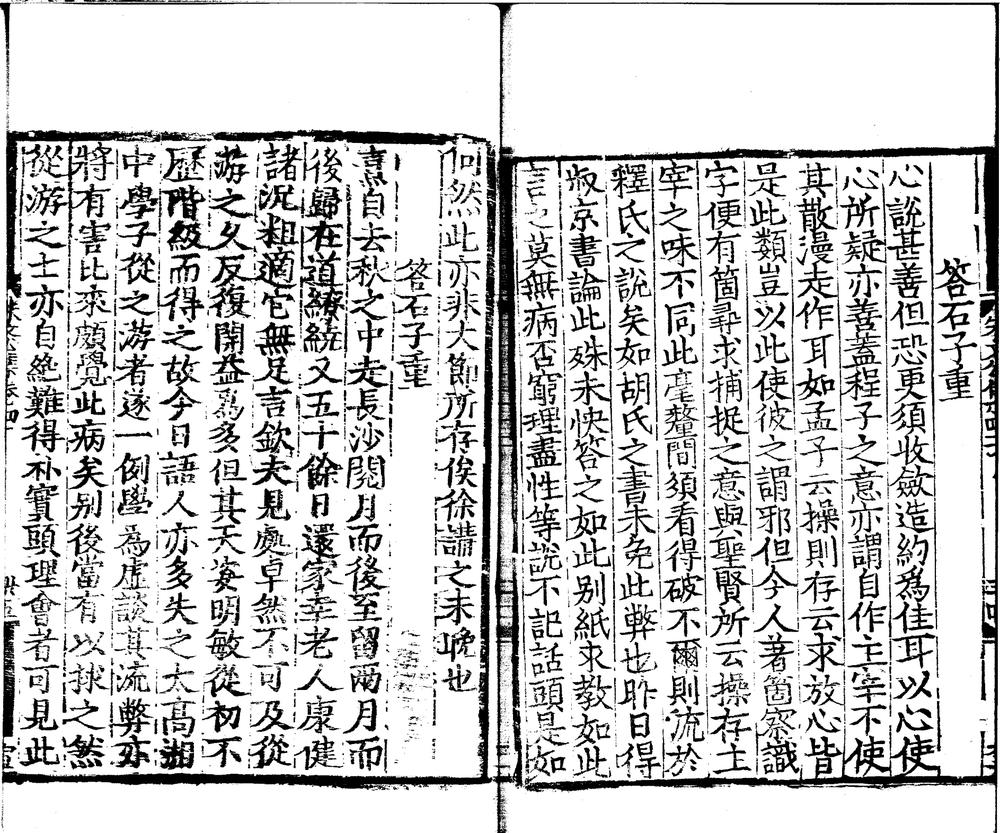 答石子重
心說甚善但恐更須收斂造約爲佳耳以心使
心所疑亦善蓋程子之意亦謂自作主宰不使
其散漫走作耳如孟子云操則存云求放心皆
是此類豈以此使彼之謂邪但今人著箇察識
字便有箇尋求捕捉之意與聖賢所云操存主
宰之味不同此毫釐間須看得破不爾則流於
釋氏之說矣如胡氏之書未免此弊也昨日得
叔京書論此殊未快答之如此别紙求教如此
言之莫無病否窮理盡性等說不記話頭是如
何然此亦非大節所存俟徐講之未晚也
答石子重
熹自去秋之中走長沙閱月而後至留兩月而
後歸在道繚繞又五十餘日還家幸老人康健
諸況粗適它無足言欽夫見處卓然不可及從
游之久反復開益爲多但其天姿明敏從初不
歷階級而得之故今日語人亦多失之太高湘
中學子從之游者遂一例學爲虛談其流弊亦
將有害比來頗覺此病矣别後當有以捄之然
從游之士亦自絶難得朴實頭理會者可見此